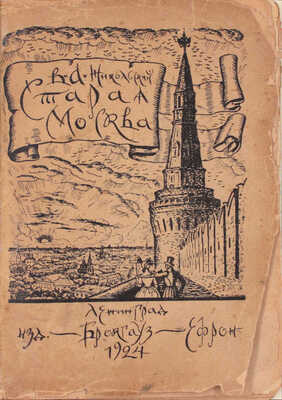 Вл. Никольский
Старая
Москва
Ленинград
изд. — Брокгауз — Ефрон
1924